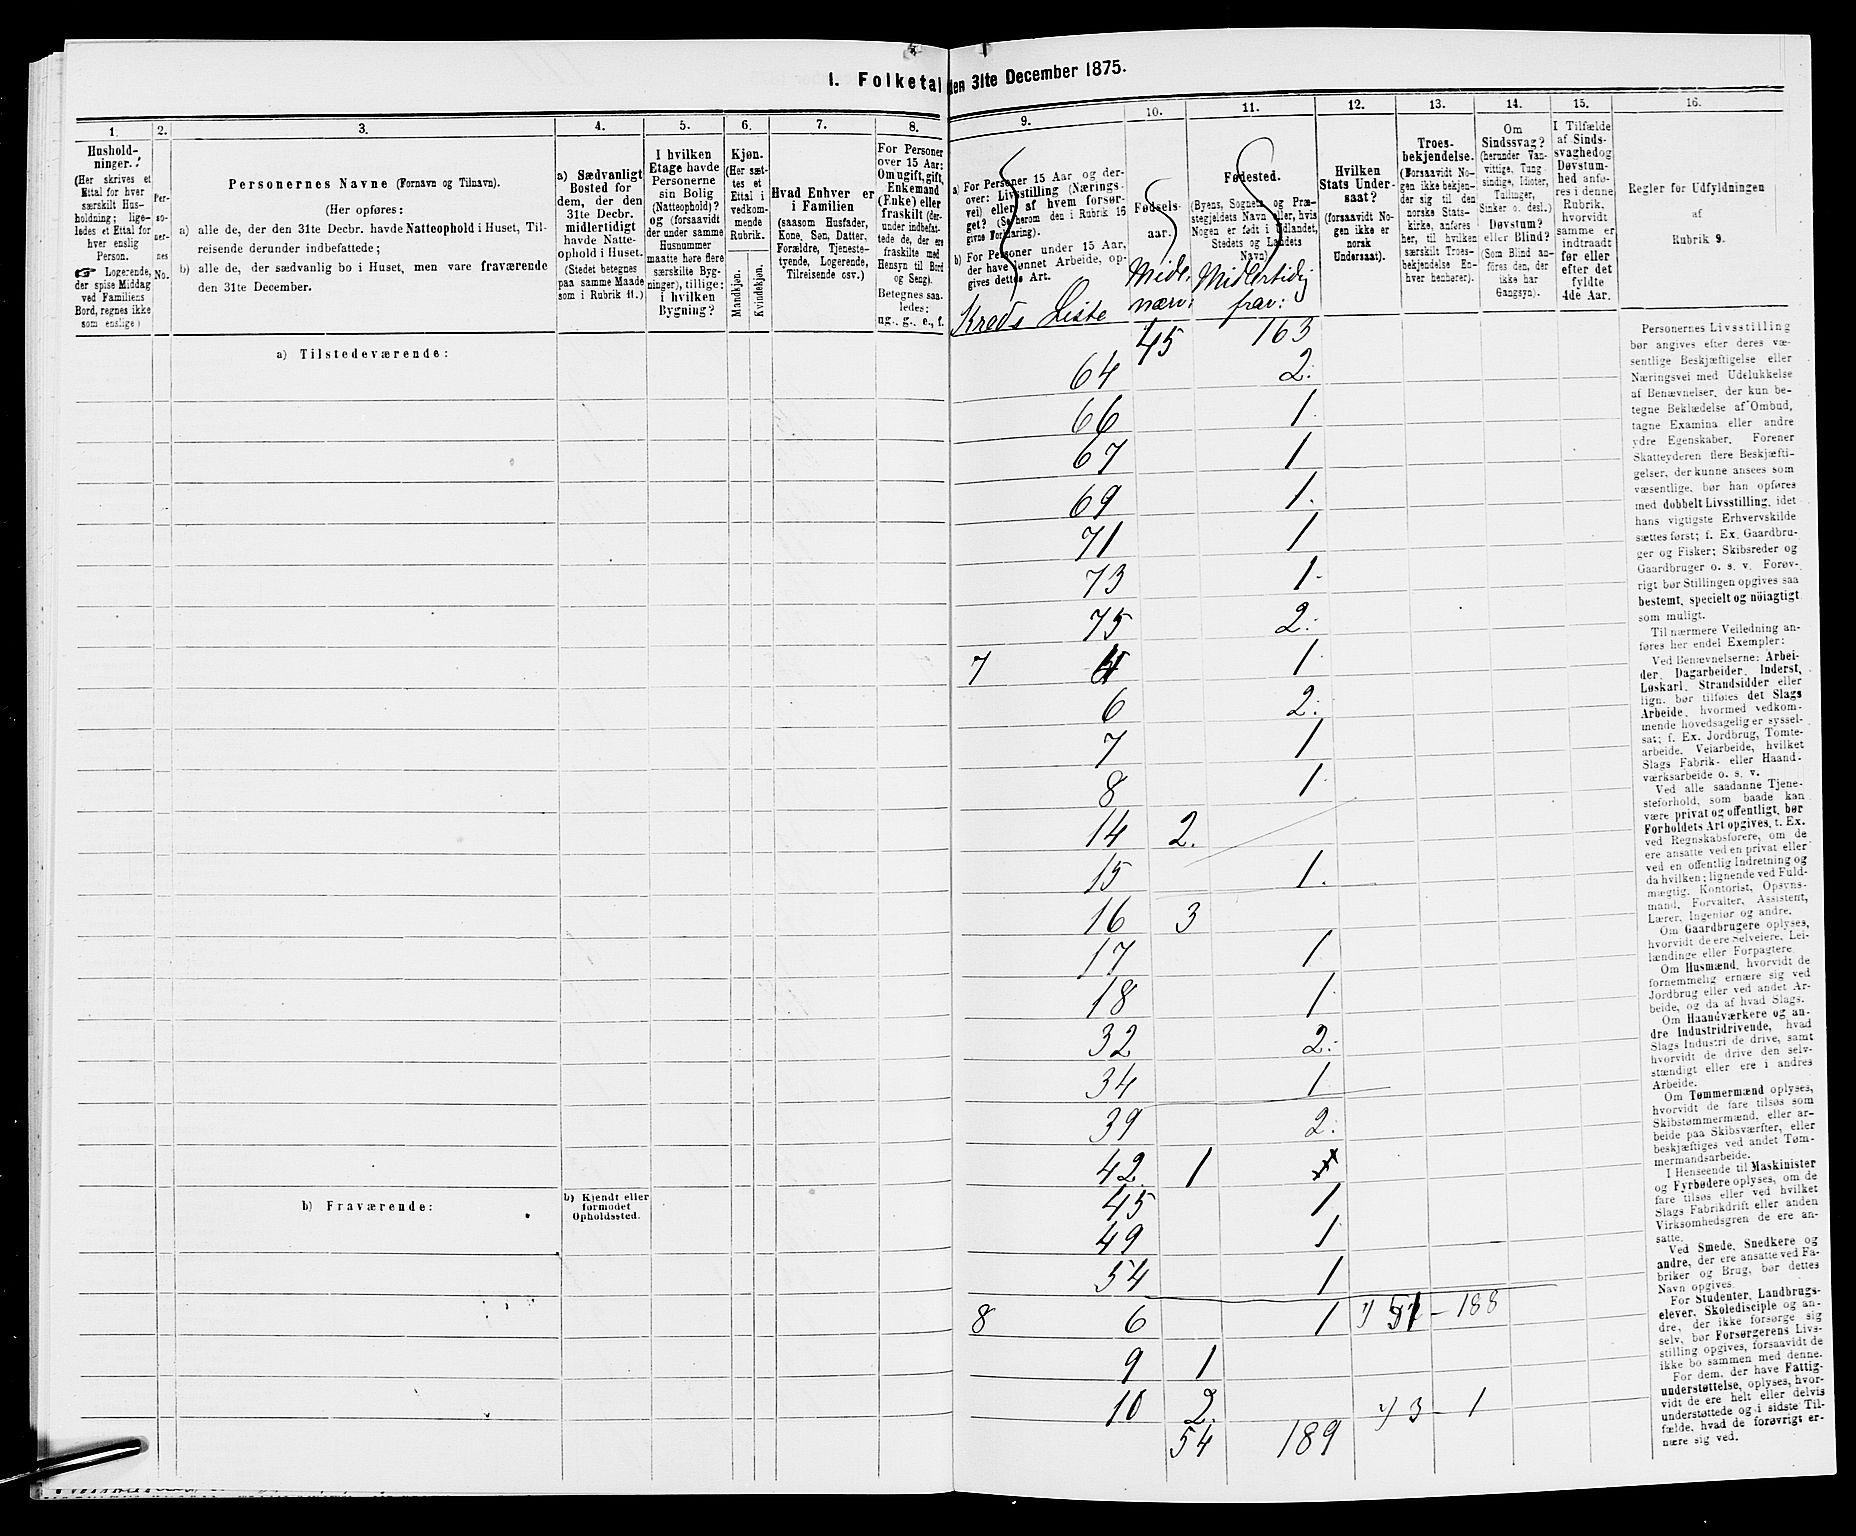 I. Folketal den 31te December 1875.
1.
2.
3.
4.
5.
6.
7.
8.
9.
10.
11.
12.
13.
14.
15.
16.
Hushold-
ninger.
(Her skrives et
Ettal for hver
særskilt Hus-
holdning; lige-
ledes et Ettal for
hver enslig
Person.
☞ Logerende,
der spise Middag
ved Familiens
Bord, regnes ikke
som enslige)
Per-
so-
ner-
nes
No.
Personernes Navne (Fornavn og Tilnavn).
(Her opføres:
a) alle de, der den 31te Decbr. havde Natteophold i Huset, Til-
reisende derunder indbefattede;
b) alle de, der sædvanlig bo i Huset, men vare fraværende
den 31te December.
a) Sædvanligt
Bosted for
dem, der den
31te Decbr.
midlertidigt
havde Natte-
ophold i Huset.
(Stedet betegnes
paa samme Maade
som i Rubrik 11.)
I hvilken
Etage havde
Personerne
sin Bolig
(Natteophold)?
og (forsaavidt
der under samme
Husnummer
maatte høre flere
særskilte Byg-
ninger), tillige:
i hvilken
Bygning?
Kjøn.
(Her sæt-
tes et
Ettal i
vedkom-
mende
Rubrik.
Mandkjøn.
Kvindekjøn.
Hvad Enhver er
i Familien
(saasom Husfader,
Kone, Søn, Datter,
Forældre, Tjeneste-
tyende, Logerende,
Tilreisende osv.)
For Personer
over 15 Aar:
Om ugift, gift,
Enkemand
(Enke) eller
fraskilt (der-
under indbefat-
tede de, der ere
fraskilte med
Hensyn til Bord
og Seng).
Betegnes saa-
ledes:
ug., g., e., f.
a) For Personer 15 Aar og der-
over: Livsstilling (Nærings-
vei) eller af hvem forsør-
get? (Se herom den i Rubrik 16
givne Forklaring).
b) For Personer under 15 Aar,
der have lønnet Arbeide, op-
gives dettes Art.
Fødsels-
aar.
Fødested.
(Byens, Sognets og Præ-
stegjeldets Navn eller, hvis
Nogen er født i Udlandet,
Stedets og Landets
Navn)
Hvilken
Stats Under-
saat?
(forsaavidt No-
gen ikke er
norsk
Undersaat).
Troes-
bekjendelse.
(Forsaavidt No-
gen ikke bekjen-
der sig til den
norske Stats-
kirke, anføres
her, til hvilken
særskilt Troes-
bekjendelse En-
hver henhører).
Om
Sindssvag?
(herunder Van-
vittige, Tung-
sindige, Idioter,
Tullinger,
Sinker o. desl.)
Døvstum?
eller Blind?
(Som Blind an-
føres den, der
ikke har
Gangsyn).
I Tilfælde
af Sinds-
svaghed og
Døvstum-
hed anfø-
res i denne
Rubrik,
hvorvidt
samme er
indtraadt
før eller
efter det
fyldte
4de Aar.
Regler for Udfyldningen
af
Rubrik 9.
Kreds Liste Midl. nær: Midlertidig frav:
a) Tilstedeværende:
45 163
64 2.
66 1.
67 1
69 1.
71 1
73 1.
75 2.
7 4 1.
6 2.
7 1
8 1.
14 2.
15 1.
16 3
17 1
18 1.
32 2.
34 1
39 2.
42 1
45 1
49 1.
54 1
8 6 1 51 - 188
9 1
10 2. 3 - 1
54 189
b) Fraværende:
b) Kjendt eller
formodet
Opholdssted.
Personernes Livsstilling
bør angives efter deres væ-
sentlige Beskjæftigelse eller
Næringsvei med Udelukkelse
af Benævnelser, der kun be-
tegne Beklædelse af Ombud,
tagne Examina eller andre
ydre Egenskaber. Forener
Skatteyderen flere Beskjæfti-
gelser, der kunne ansees som
væsentlige, bør han opføres
med dobbelt Livsstilling, idet
hans vigtigste Erhvervskilde
sættes først; f. Ex. Gaardbru-
ger og Fisker; Skibsreder og
Gaardbruger o. s. v. Forøv-
rigt bør Stillingen opgives saa
bestemt, specielt og nöiagtigt
som muligt.
Til nærmere Veiledning an-
føres her endel Exempler:
Ved Benævnelserne: Arbei-
der, Dagarbeider, Inderst,
Løskarl, Strandsidder eller
lign. bør tilføres det Slags
Arbeide, hvormed vedkom-
mende hovedsagelig er syssel-
sat; f. Ex. Jordbrug, Tomte-
arbeide, Veiarbeide, hvilket
Slags Fabrik- eller Haand-
værksarbeide o. s. v.
Ved alle saadanne Tjene-
steforhold, som baade kan
være privat og offentligt, bør
Forholdets Art opgives, t. Ex.
ved Regnskabsførere, om de
ere ansatte ved en privat eller
ved en offentlig Indretning og
da hvilken; lignende ved Fuld-
mægtig, Kontorist, Opsyns-
mand, Forvalter, Assistent,
Lærer, Ingeniør og andre.
Om Gaardbrugere oplyses,
hvorvidt de ere Selveiere, Lei-
lændinge eller Forpagtere.
Om Husmænd, hvorvidt de
fornemmelig ernære sig ved
Jordbrug eller ved andet Ar-
beide, og da af hvad Slags.
Om Haandværkere og an-
dre Industridrivende, hvad
Slags Industri de drive, samt
hvorvidt de drive den selv-
stændigt eller ere i andres
Arbeide.
Om Tømmermænd oplyses,
hvorvidt de fare tilsøs som
Skibstømmermænd, eller ar-
beide paa Skibsværfter, eller
beskjæftiges ved andet Tøm-
mermandsarbeide.
I Henseende til Maskinister
og Fyrbødere oplyses, om de
fare tilsøs eller ved hvilket
Slags Fabrikdrift eller anden
Virksomhedsgren de ere an-
satte.
Ved Smede, Snedkere og
andre, der ere ansatte ved Fa-
briker og Brug, bør dettes
Navn opgives.
For Studenter, Landbrugs-
elever, Skoledisciple og an-
dre, der ikke forsørge sig
selv, bør Forsørgerens Livs-
stilling opgives, forsaavidt de
ikke bo sammen med denne.
For dem, der have Fattig-
understøttelse, oplyses, hvor-
vidt de ere helt eller delvis
understøttede og i sidste Til-
fælde, hvad de forøvrigt er-
nære sig ved.